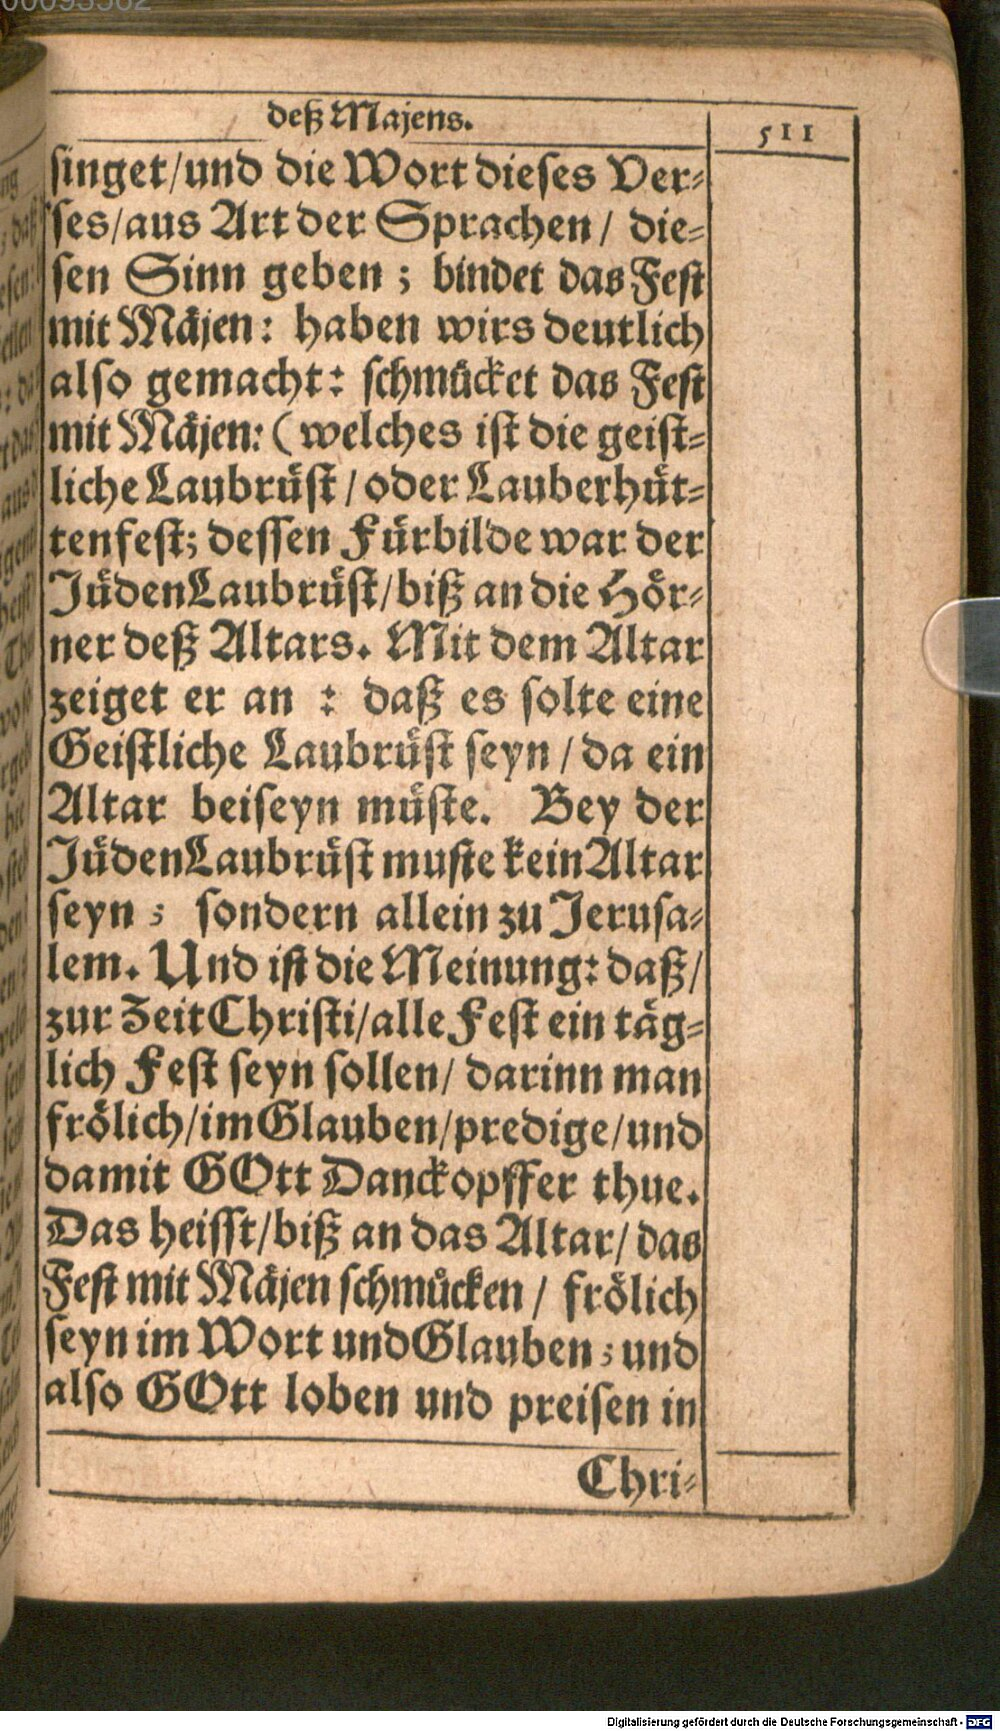 deß Majens.
511
singet/und die Wort dieses Ver-
ses/aus Art der Sprachen/ die-
sen Sinn geben; bindet das Fest
mit Mäjen: haben wirs deutlich
also gemacht: schmücket das Fest
mit Mäjen: (welches ist die geist-
liche Laubrüst/oder Lauberhüt-
tenfest; dessen Fürbilde war der
Jüden Laubrüst/biß an die Hör-
ner deß Altars. Mit dem Altar
zeiget er an : daß es solte eine
Geistliche Laubrüst seyn/da ein
Altar beiseyn müste. Bey der
Jüden Laubrüst muste kein Altar
seyn; sondern allein zu Jerusa-
lem. Und ist die Meinung: daß/
zur Zeit Christi/alle Fest ein täg-
lich Fest seyn sollen/ darinn man
frölich/im Glauben/predige/und
damit GOtt Danckopffer thue.
Das heisst/biß an das Altar/das
Fest mit Mäjen schmücken/ frölich
seyn im Wort und Glauben; und
also GOtt loben und preisen in
Chri-
Digitalisierung gefördert durch die Deutsche Forschungsgemeinschaft - DFG